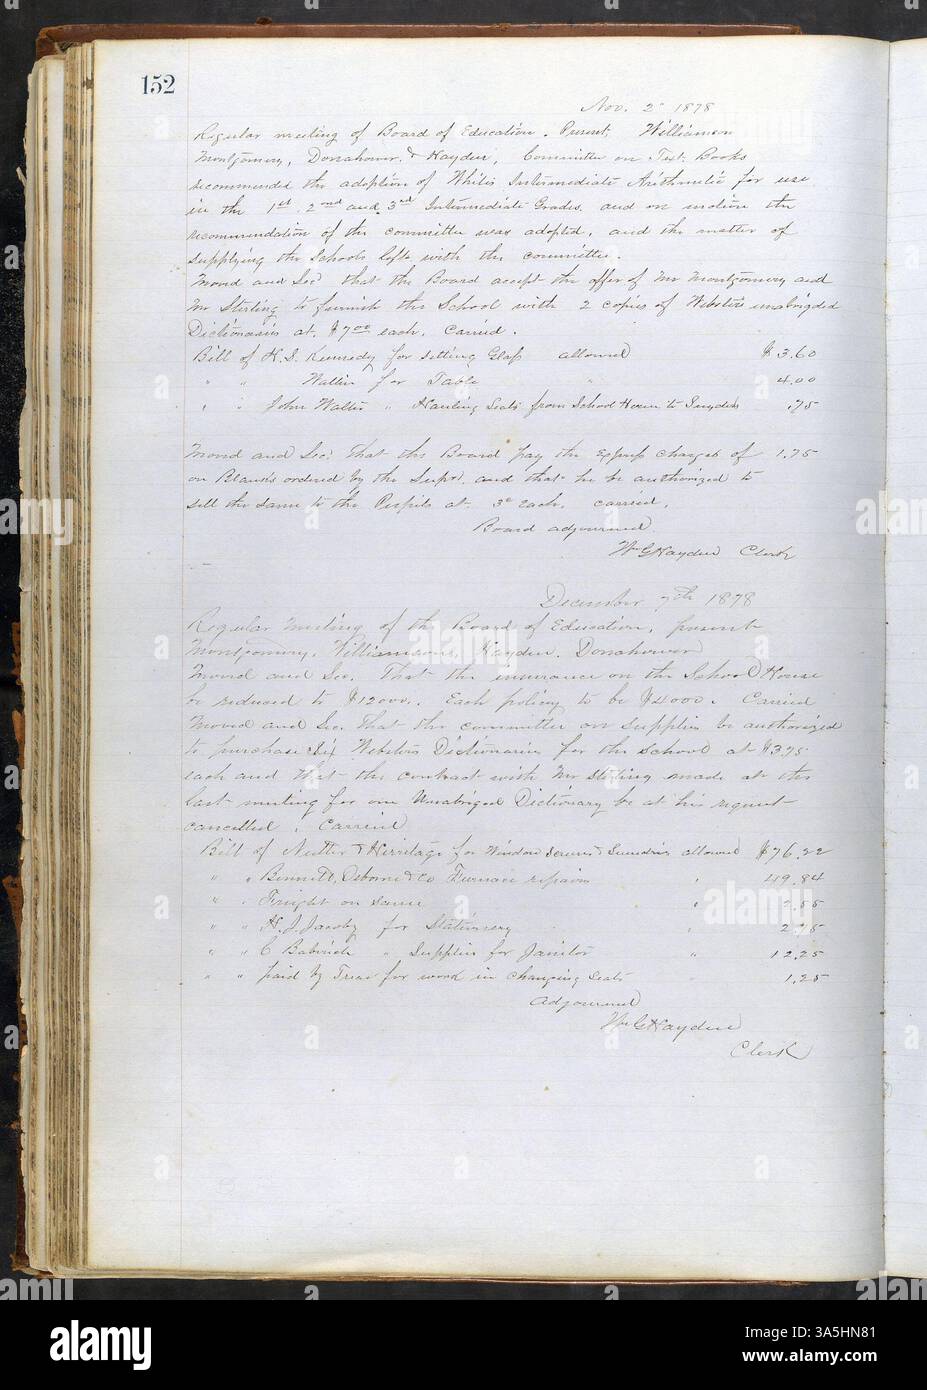 152
Nov. 2d 1878
Regular meeting of Board of Education. Present, Williamson
Montgomery, Donahower, & Hayden, Committee on Text Books
recommended the adoption of White's Intermediate Arithmetic for use
in the 1st. 2nd and 3rd Intermediate Grades. and on motion the
recommendation of the committee was adopted, and the matter of
supplying the Schools left with the committee.
Moved and Sec'd that the Board accept the offer of Mr Montgomery and
Mr Sterling to furnish the School with 2 copies of Webster's unabridged
Dictionaries at $7.00 each. Carried.
Bill of H. S. Kennedy for Setting Glass allowed $3.60
" " for Table " 4.00
" " John " Hauling Seats from School House to Snyders .75
Moved and Sec: That the Board pay the Express charges of 1.75
on Blanks ordered by the Supt. and that he be authorized to
sell the same to the Pupils at 3c Each. carried.
Board adjourned
Wm G Hayden Clerk
December 7th 1878
Regular Meeting of the Board of Education, present
Montgomery, Williamson, Hayden, Donahower
Moved and Sec. That the insurance on the School House
be reduced to $12000. Each policy to be $4000. Carried
Moved and Sec. That the committee on supplies be authorized
to purchase Six Webster's Dictionaries for the School at $3.75
each and that the contract with Mr Sterling made at the
last meeting for one Unabridged Dictionary be at his request
cancelled. Carried
Bill of & Herritage for Window screens & Sundries allowed $76.22
" " Bennett, Osborne & Co Furnace repairs " 49.84
" " Freight on same " 2.55
" " H. J. Jacoby for Stationery " 2.25
" " C Babcock " Supplies for Janitor " 12.25
" " paid by for work in Changing Seats 1.25
Adjourned
Wm G Hayden
Clerk
alamy
Image ID: 3A5HN81
www.alamy.com